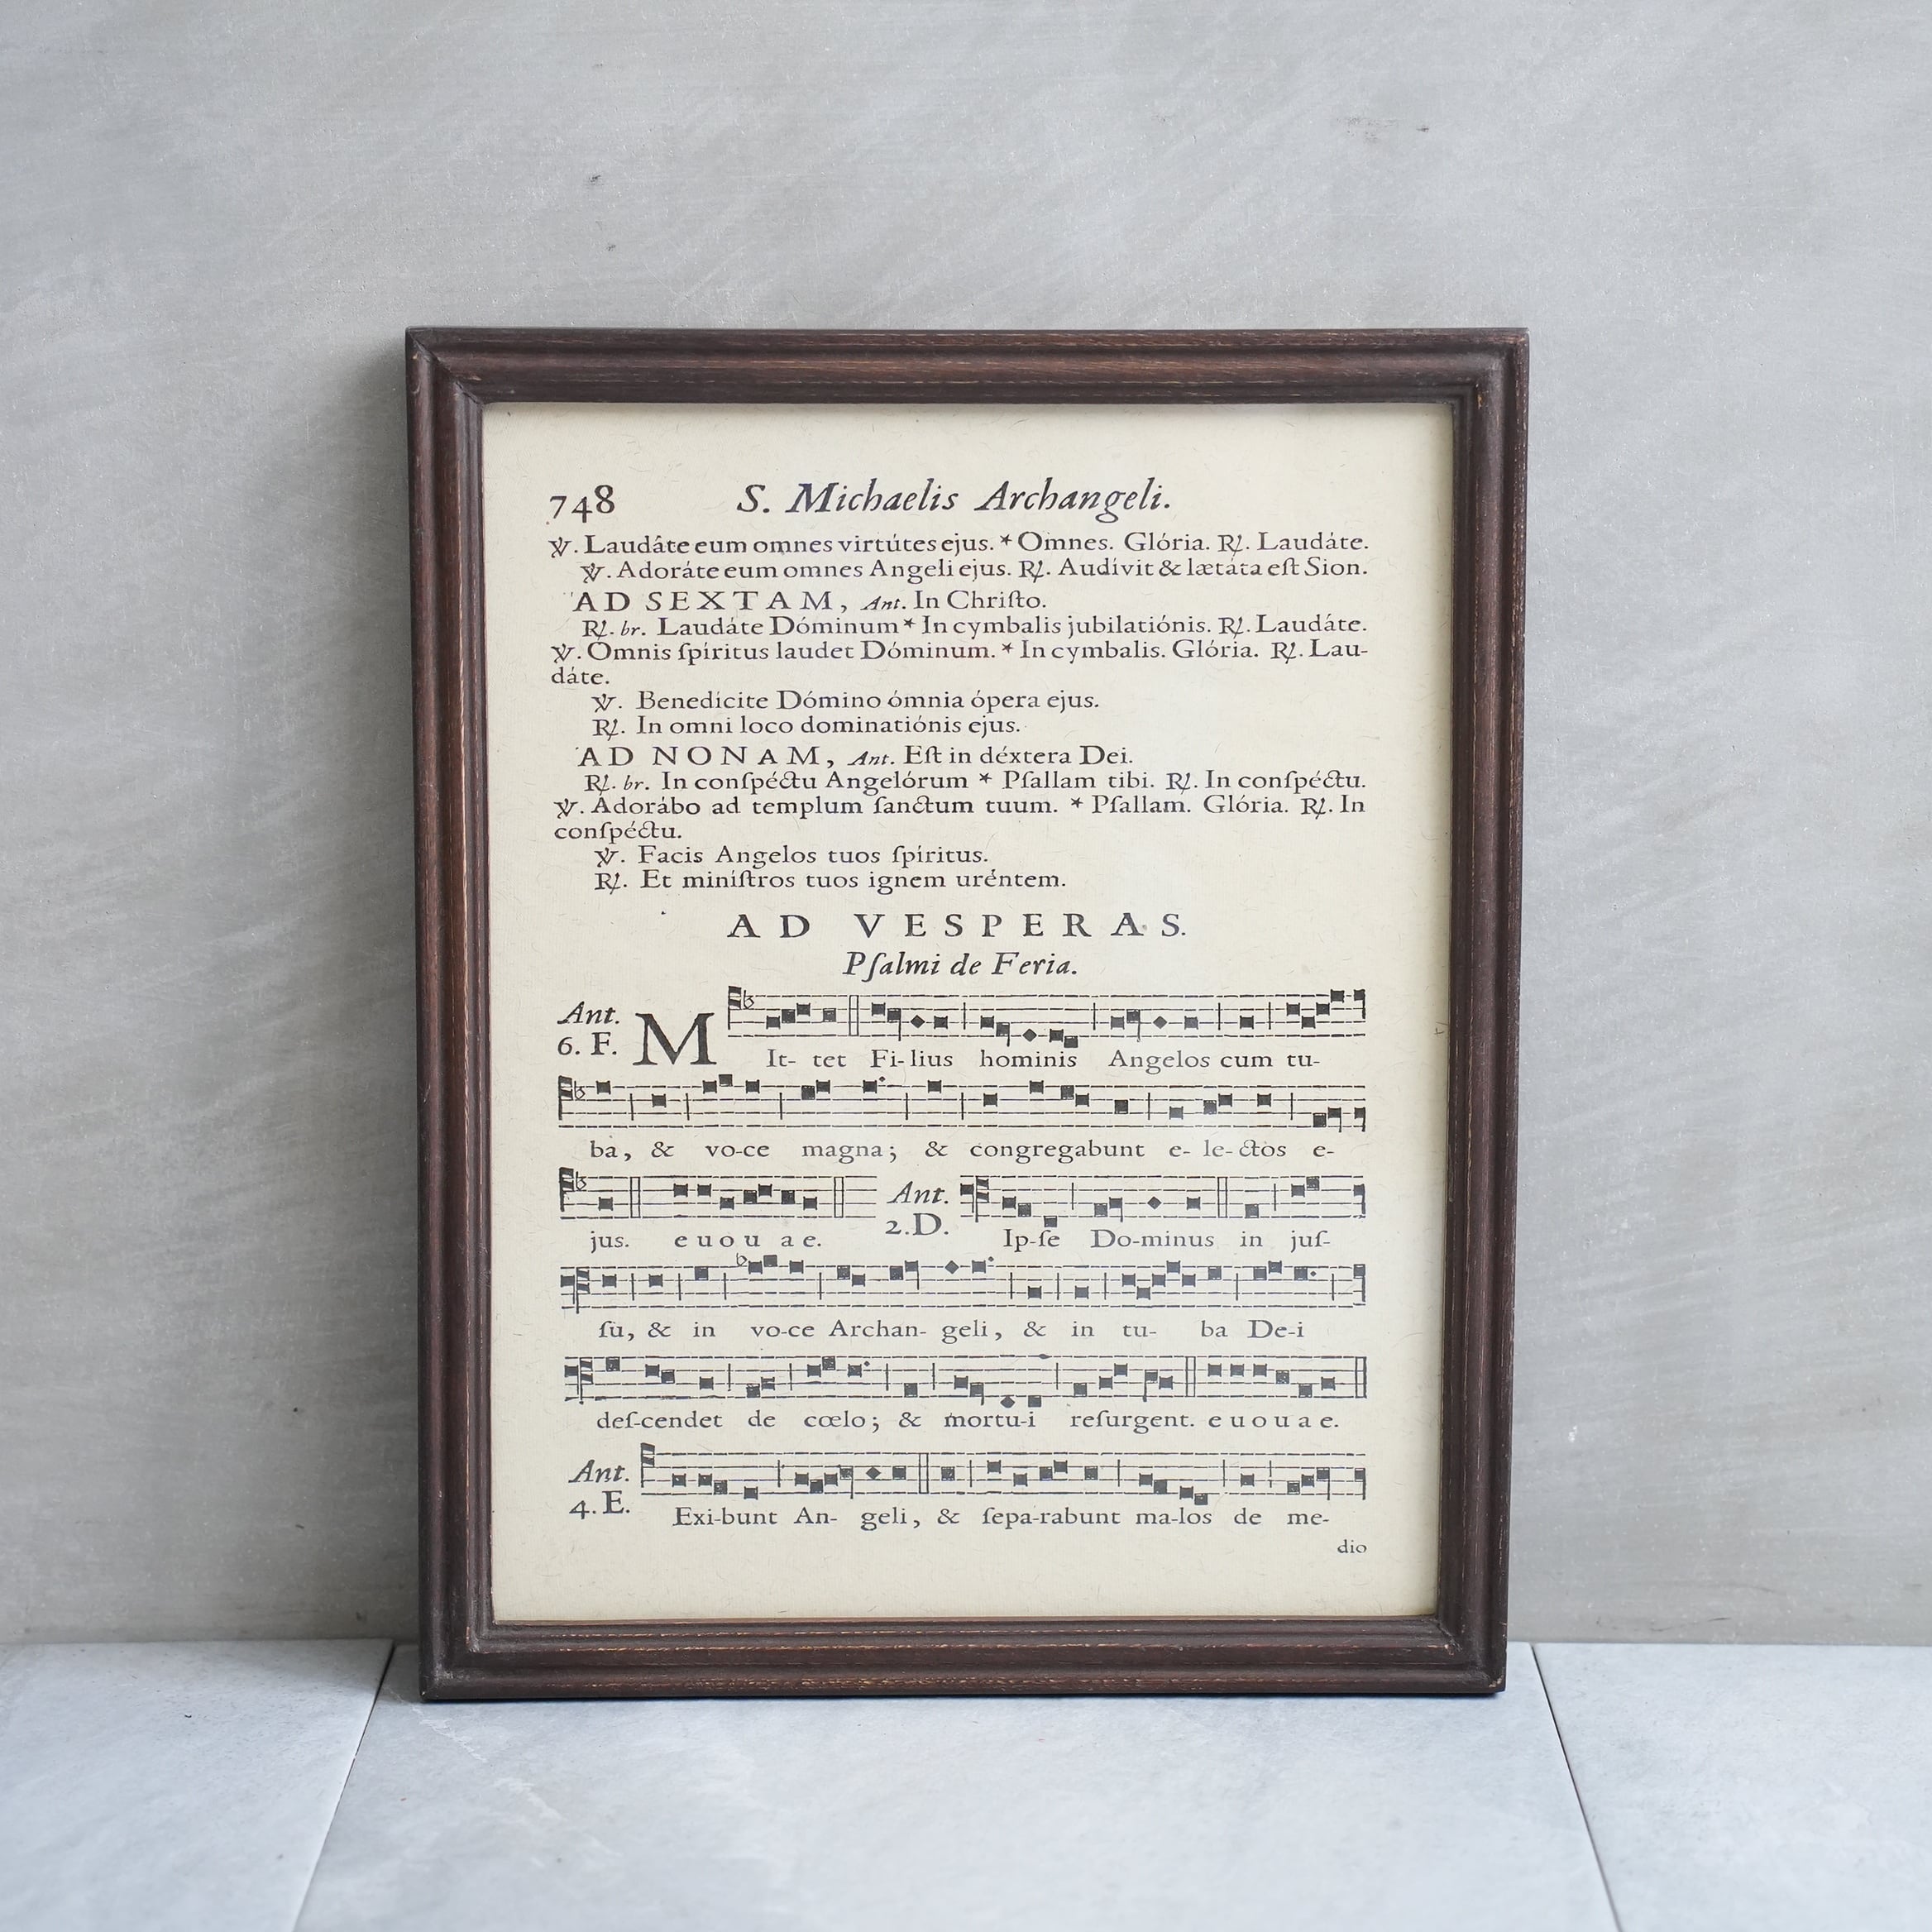 748 S. Michaelis Archangeli.
℣. Laudâte eum omnes virtútes ejus. * Omnes. Glória. ℟. Laudáte.
℣. Adoráte eum omnes Angeli ejus. ℟. Audívit & lætáta eſt Sion.
AD SEXTAM, Ant. In Chriſto.
℟. br. Laudáte Dóminum * In cymbalis jubilatiónis. ℟. Laudáte.
℣. Omnis ſpíritus laudet Dóminum. * In cymbalis. Glória. ℟. Lau-
dáte.
℣. Benedícite Dómino ómnia ópera ejus.
℟. In omni loco dominatiónis ejus.
AD NONAM, Ant. Eſt in déxtera Dei.
℟. br. In conſpéctu Angelórum * Pſallam tibi. ℟. In conſpéctu.
℣. Adorábo ad templum ſanctum tuum. * Pſallam. Glória. ℟. In
conſpéctu.
℣. Facis Angelos tuos ſpíritus.
℟. Et miníſtros tuos ignem uréntem.
AD VESPERAS.
Pſalmi de Feria.
Ant.
6. F.
MIt- tet Fi-lius hominis Angelos cum tu-
ba, & vo-ce magna; & congregabunt e- le-ctos e-
jus. e u o u a e. Ant. 2. D. Ip-ſe Do-minus in juſ-
ſu, & in vo-ce Archan- geli, & in tu- ba De-i
deſ-cendet de cœlo; & mortu-i reſurgent. e u o u a e.
Ant.
4. E.
Exi-bunt An- geli, & ſepa-rabunt ma-los de me-
dio